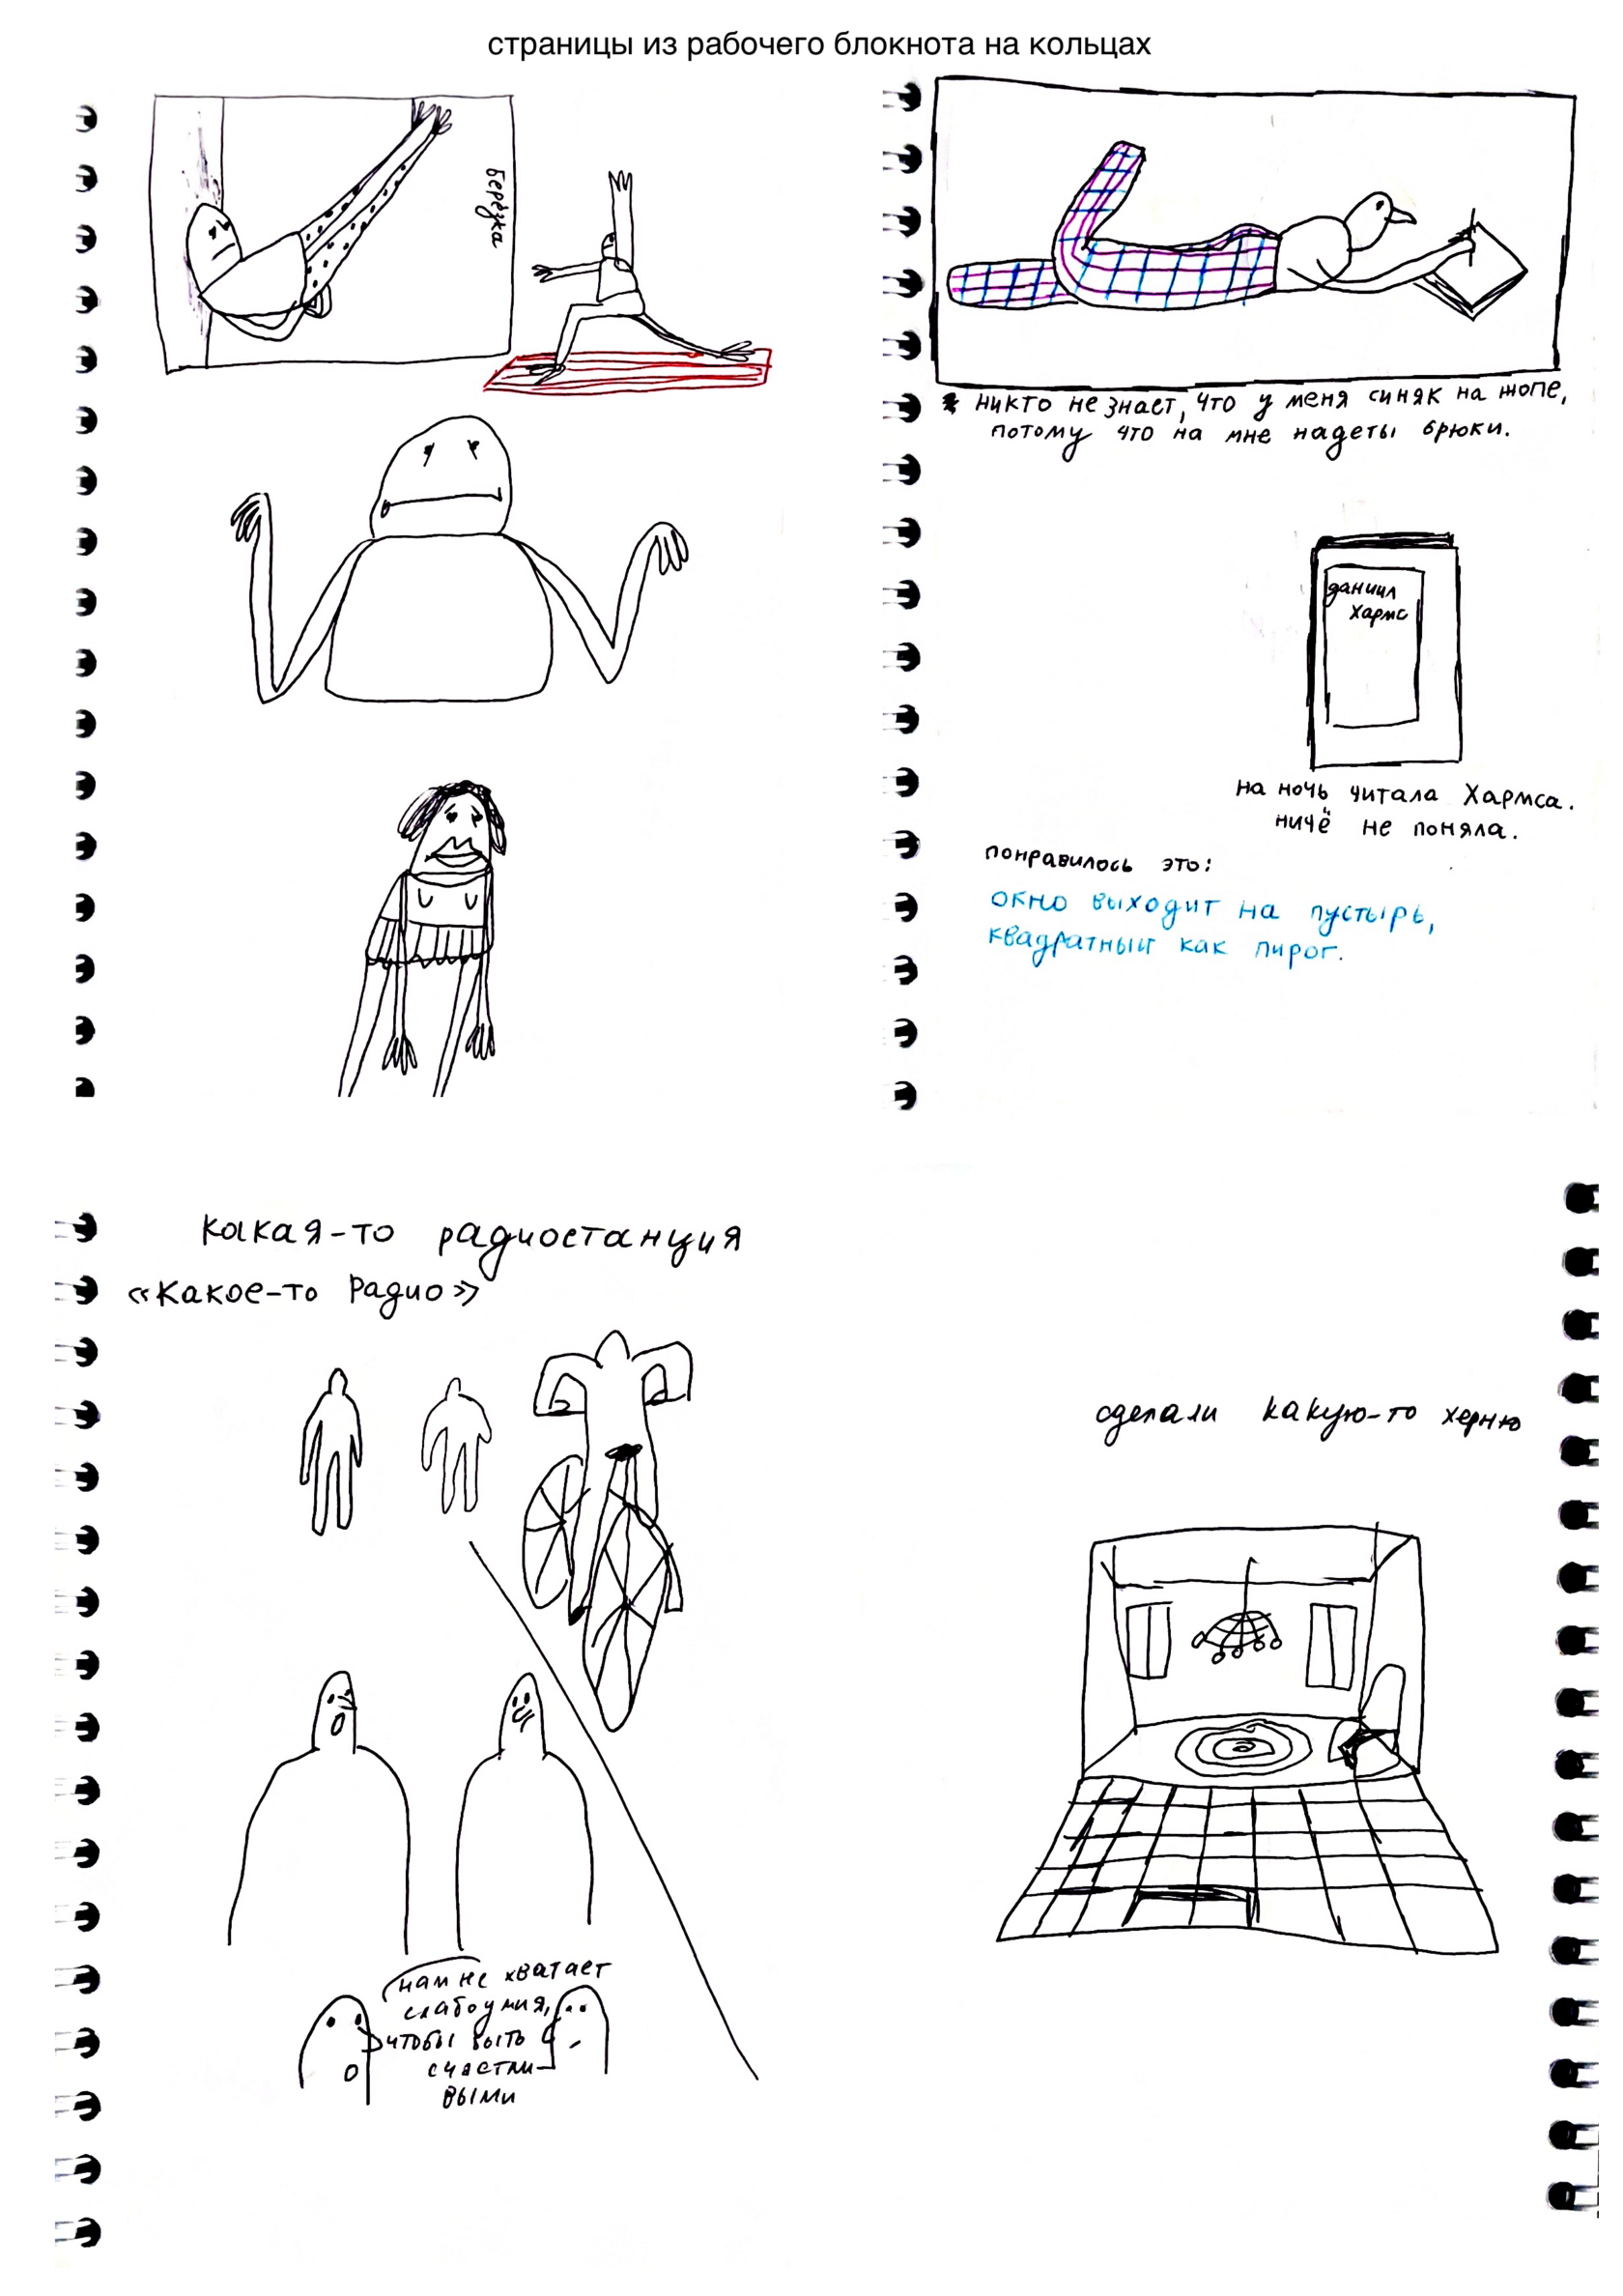 страницы из рабочего блокнота на кольцах
берёзка
никто не знает, что у меня синяк на жопе,
потому что на мне надеты брюки.
даниил
Хармс
на ночь читала Хармса.
ничё не поняла.
понравилось это:
окно выходит на пустырь,
квадратный как пирог.
какая-то радиостанция
«Какое-то Радио»
сделали какую-то херню
нам не хватает
слабоумия,
чтобы быть
счастли-
выми